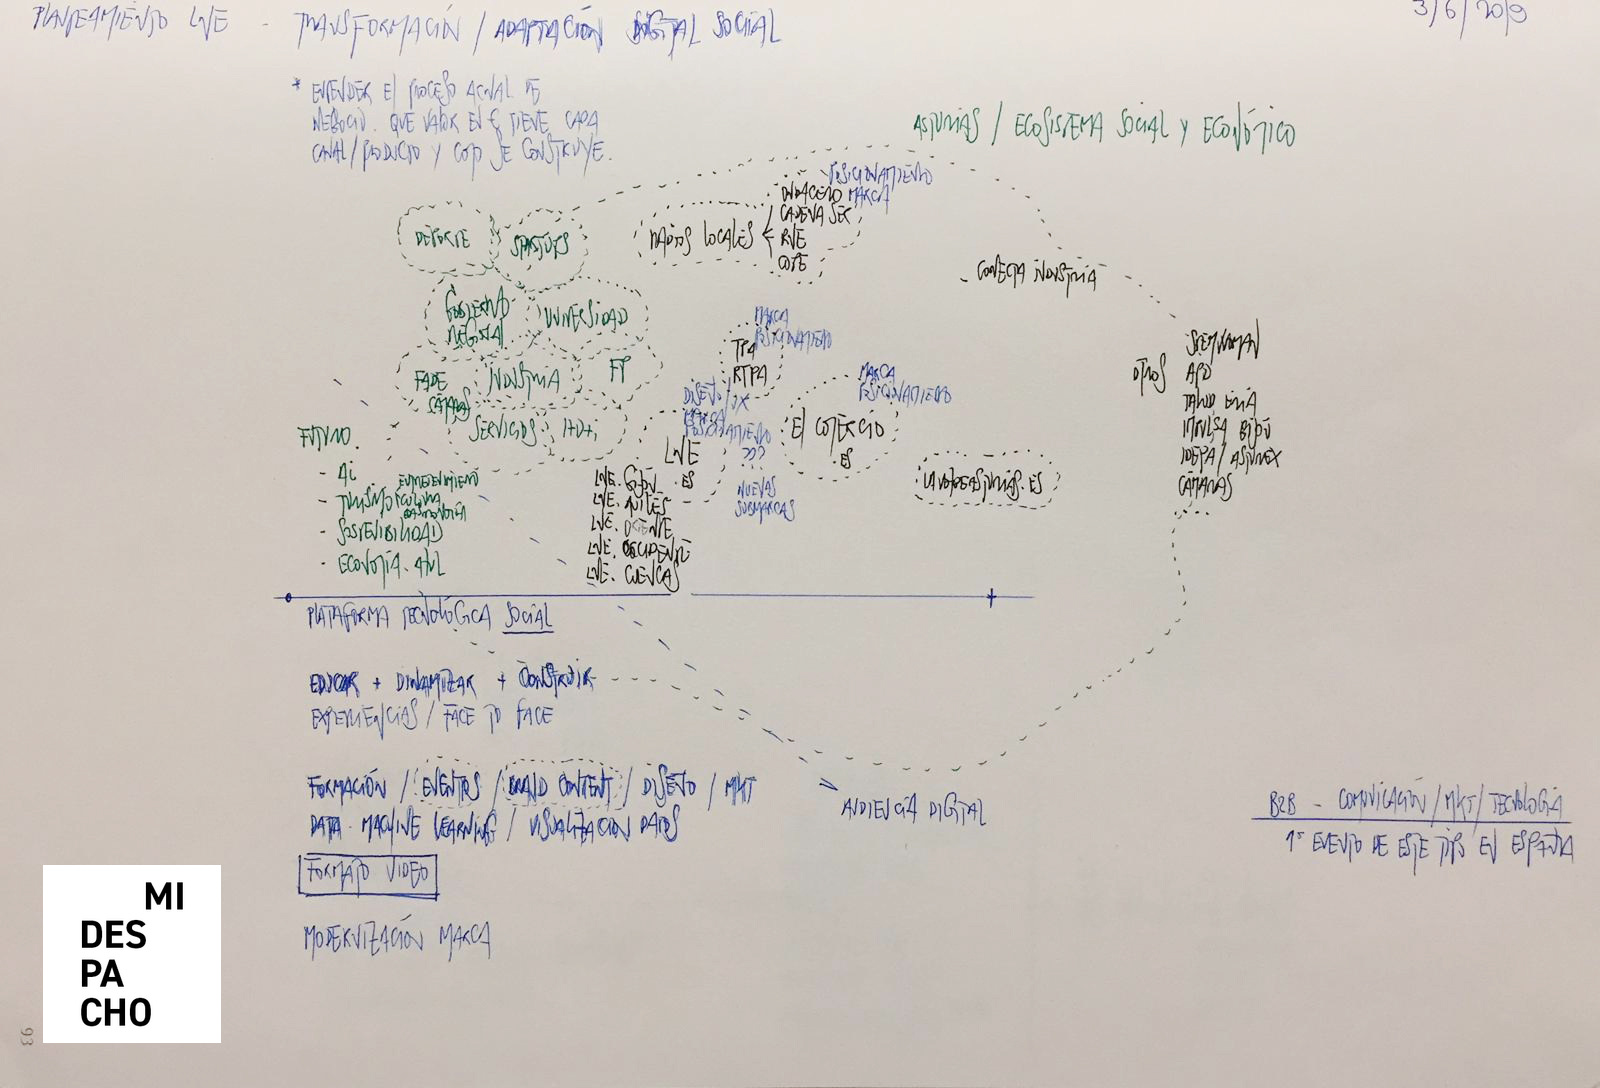 PLANTEAMIENTO LNE - TRANSFORMACIÓN / ADAPTACIÓN DIGITAL SOCIAL
3/6/2019
* ENTENDER El PROCESO ACTUAL DE
NEGOCIO. QUE VALOR EN € TIENE CADA
CANAL/PRODUCTO Y COMO SE CONSTRUYE.
ASTURIAS / ECOSISTEMA SOCIAL Y ECONÓMICO
DEPORTE
STARTUPS
GOBIERNO
REGIONAL
UNIVERSIDAD
FADE
CÁMARAS
INDUSTRIA
FP
SERVICIOS
I+D+i
MEDIOS LOCALES
POSICIONAMIENTO
MARCA
ONDACERO
CADENA SER
RNE
COPE
- CONECTA INDUSTRIA
OTROS
APD
IDEPA / ASTUREX
CÁMARAS
MARCA
POSICIONAMIENTO
TPA
RTPA
DISEÑO/UX
MARCA
POSICIONAMIENTO
???
NUEVAS
SUBMARCAS
LNE
.ES
MARCA
POSICIONAMIENTO
El COMERCIO
.ES
LAVOZDEASTURIAS.ES
LNE. GIJÓN
LNE. AVILÉS
LNE. ORIENTE
LNE. OCCIDENTE
LNE. CUENCAS
FUTURO.
- AI
- TURISMO
EMPRENDIMIENTO
CULTURA
GASTRONOMÍA
- SOSTENIBILIDAD
- ECONOMÍA. AZUL
PLATAFORMA TECNOLÓGICA SOCIAL
EDUCAR + DINAMIZAR + CONSTRUIR
EXPERIENCIAS / FACE TO FACE
FORMACIÓN / EVENTOS / BRAND CONTENT / DISEÑO / MKT
DATA. MACHINE LEARNING / VISUALIZACION DATOS
FORMATO VIDEO
MODERNIZACIÓN MARCA
AUDIENCIA DIGITAL
B2B - COMUNICACIÓN / MKT / TECNOLOGÍA
1º EVENTO DE ESTE TIPO EN ESPAÑA
MI
DES
PA
CHO
93